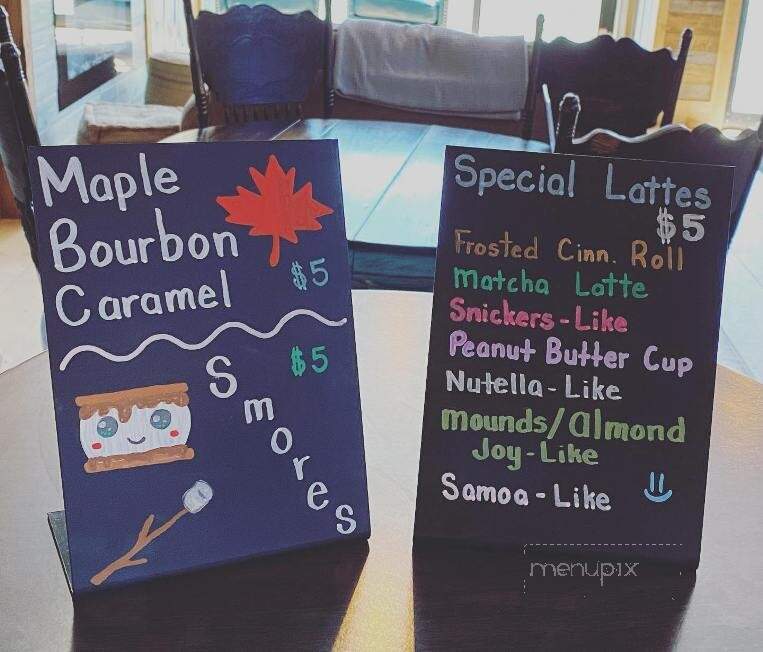 Maple
Bourbon
Caramel
$5
$5
Smores
Special Lattes
$5
Frosted Cinn. Roll
Matcha Latte
Snickers-Like
Peanut Butter Cup
Nutella-Like
mounds/almond
Joy-Like
Samoa-Like
menupix